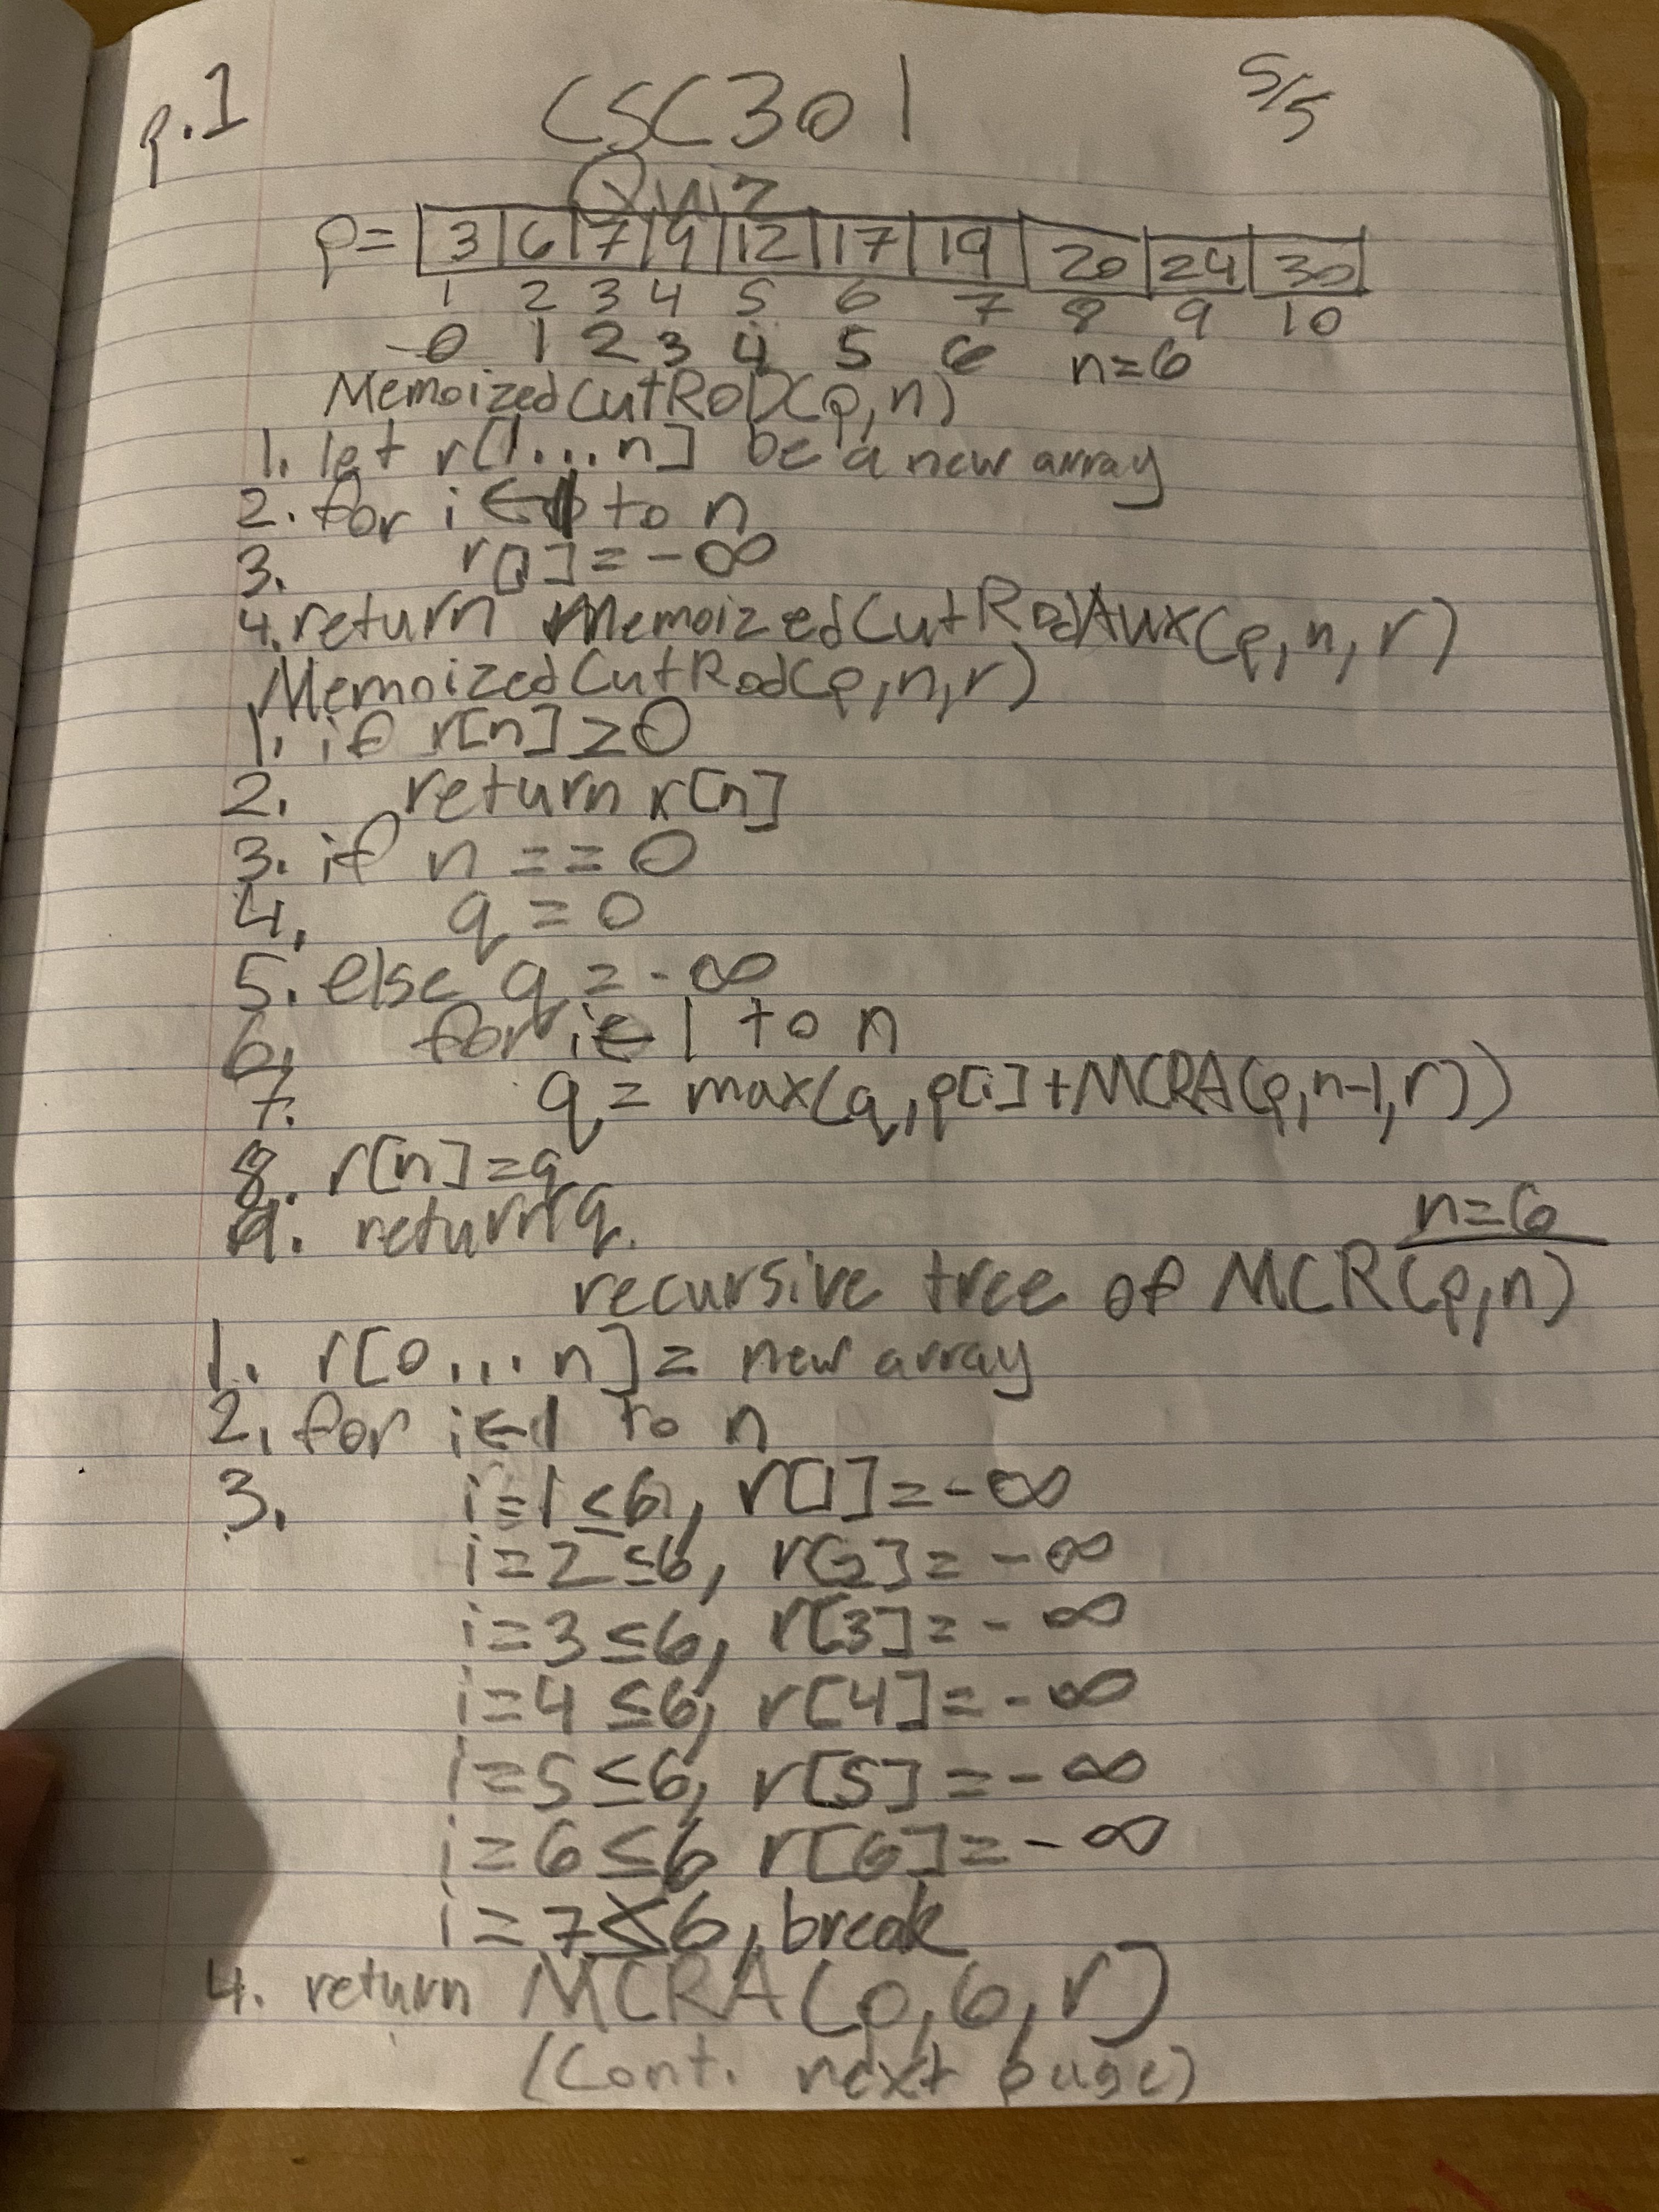 p.1 CSC301 5/5
Quiz
p= 3 6 7 9 12 17 19 20 24 30
1 2 3 4 5 6 7 8 9 10
0 1 2 3 4 5 6 n=6
MemoizedCutRoD(p,n)
1. let r[1...n] be a new array
2. for i ← 1 to n
3. r[i]=-∞
4. return MemoizedCutRodAux(p,n,r)
MemoizedCutRod(p,n,r)
1. if r[n] ≥0
2. return r[n]
3. if n == 0
4. q = 0
5. else q = -∞
6. for i← 1 to n
7. q = max(q,p[i]+MCRA(p,n-1,r))
8. r[n]=q
9. return q.
n=6
recursive tree of MCR(p,n)
1. r[0...n]= new array
2. for i←1 to n
3. i=1≤6, r[1]=-∞
i=2≤6, r[2]=-∞
i=3≤6, r[3]=-∞
i=4≤6, r[4]=-∞
i=5≤6, r[5]=-∞
i=6≤6 r[6]=-∞
i=7≰6, break
4. return MCRA(p,6,r)
(Cont. next page)